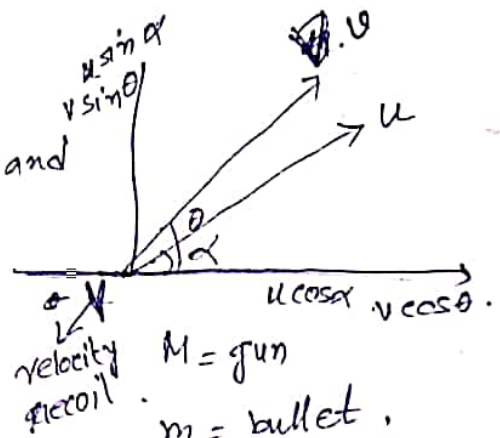 u sin α
v sin θ
v
u
and
θ
α
V
u cosα v cosθ.
velocity
recoil.
M = gun
m = bullet,